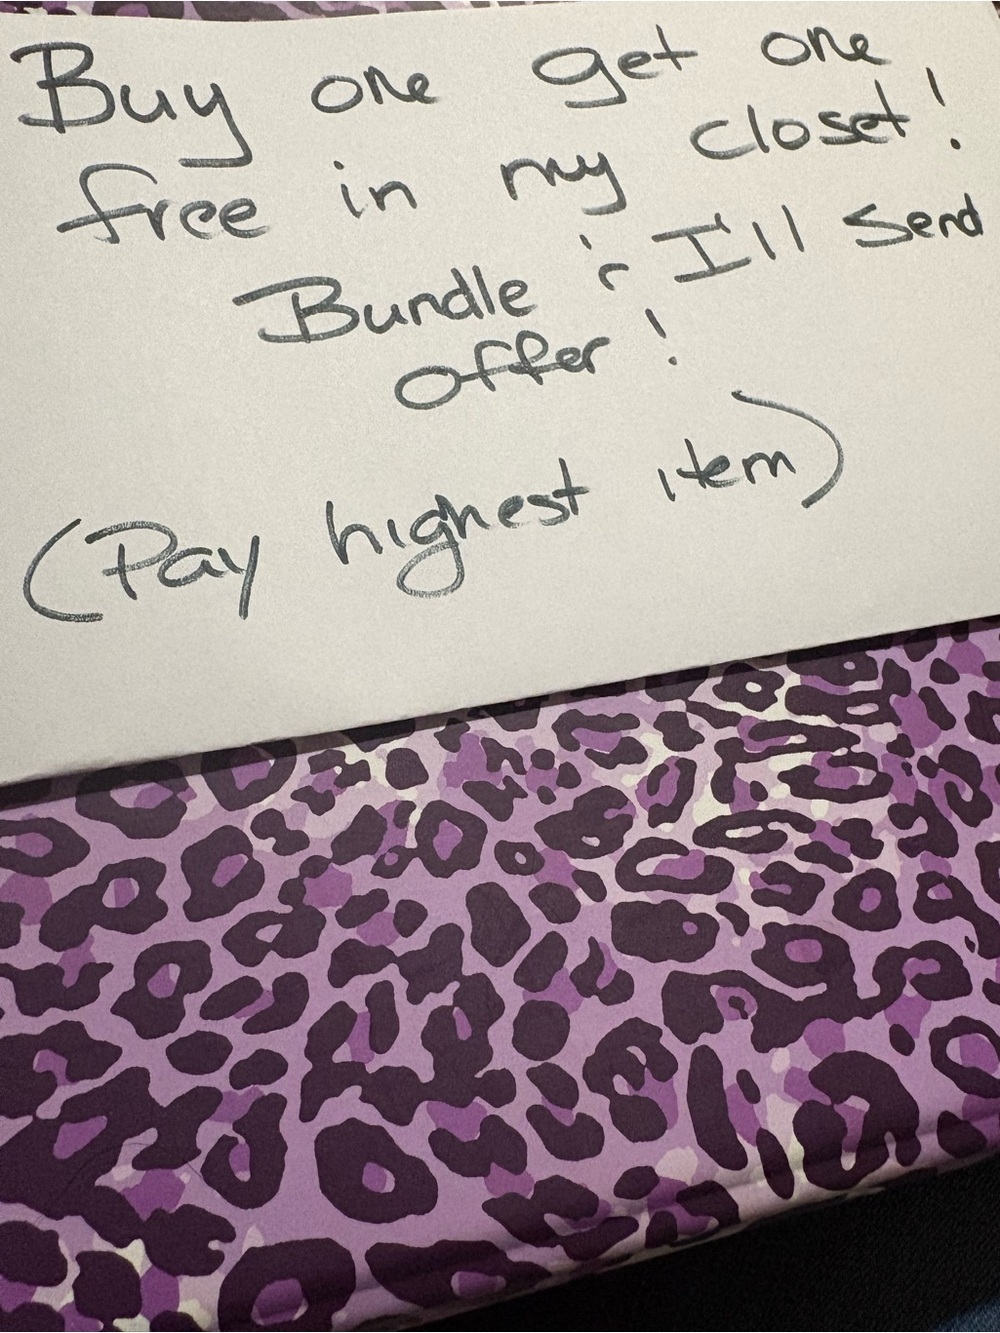 Buy one get one
free in my closet!
Bundle & I'll send
offer!
(Pay highest item)